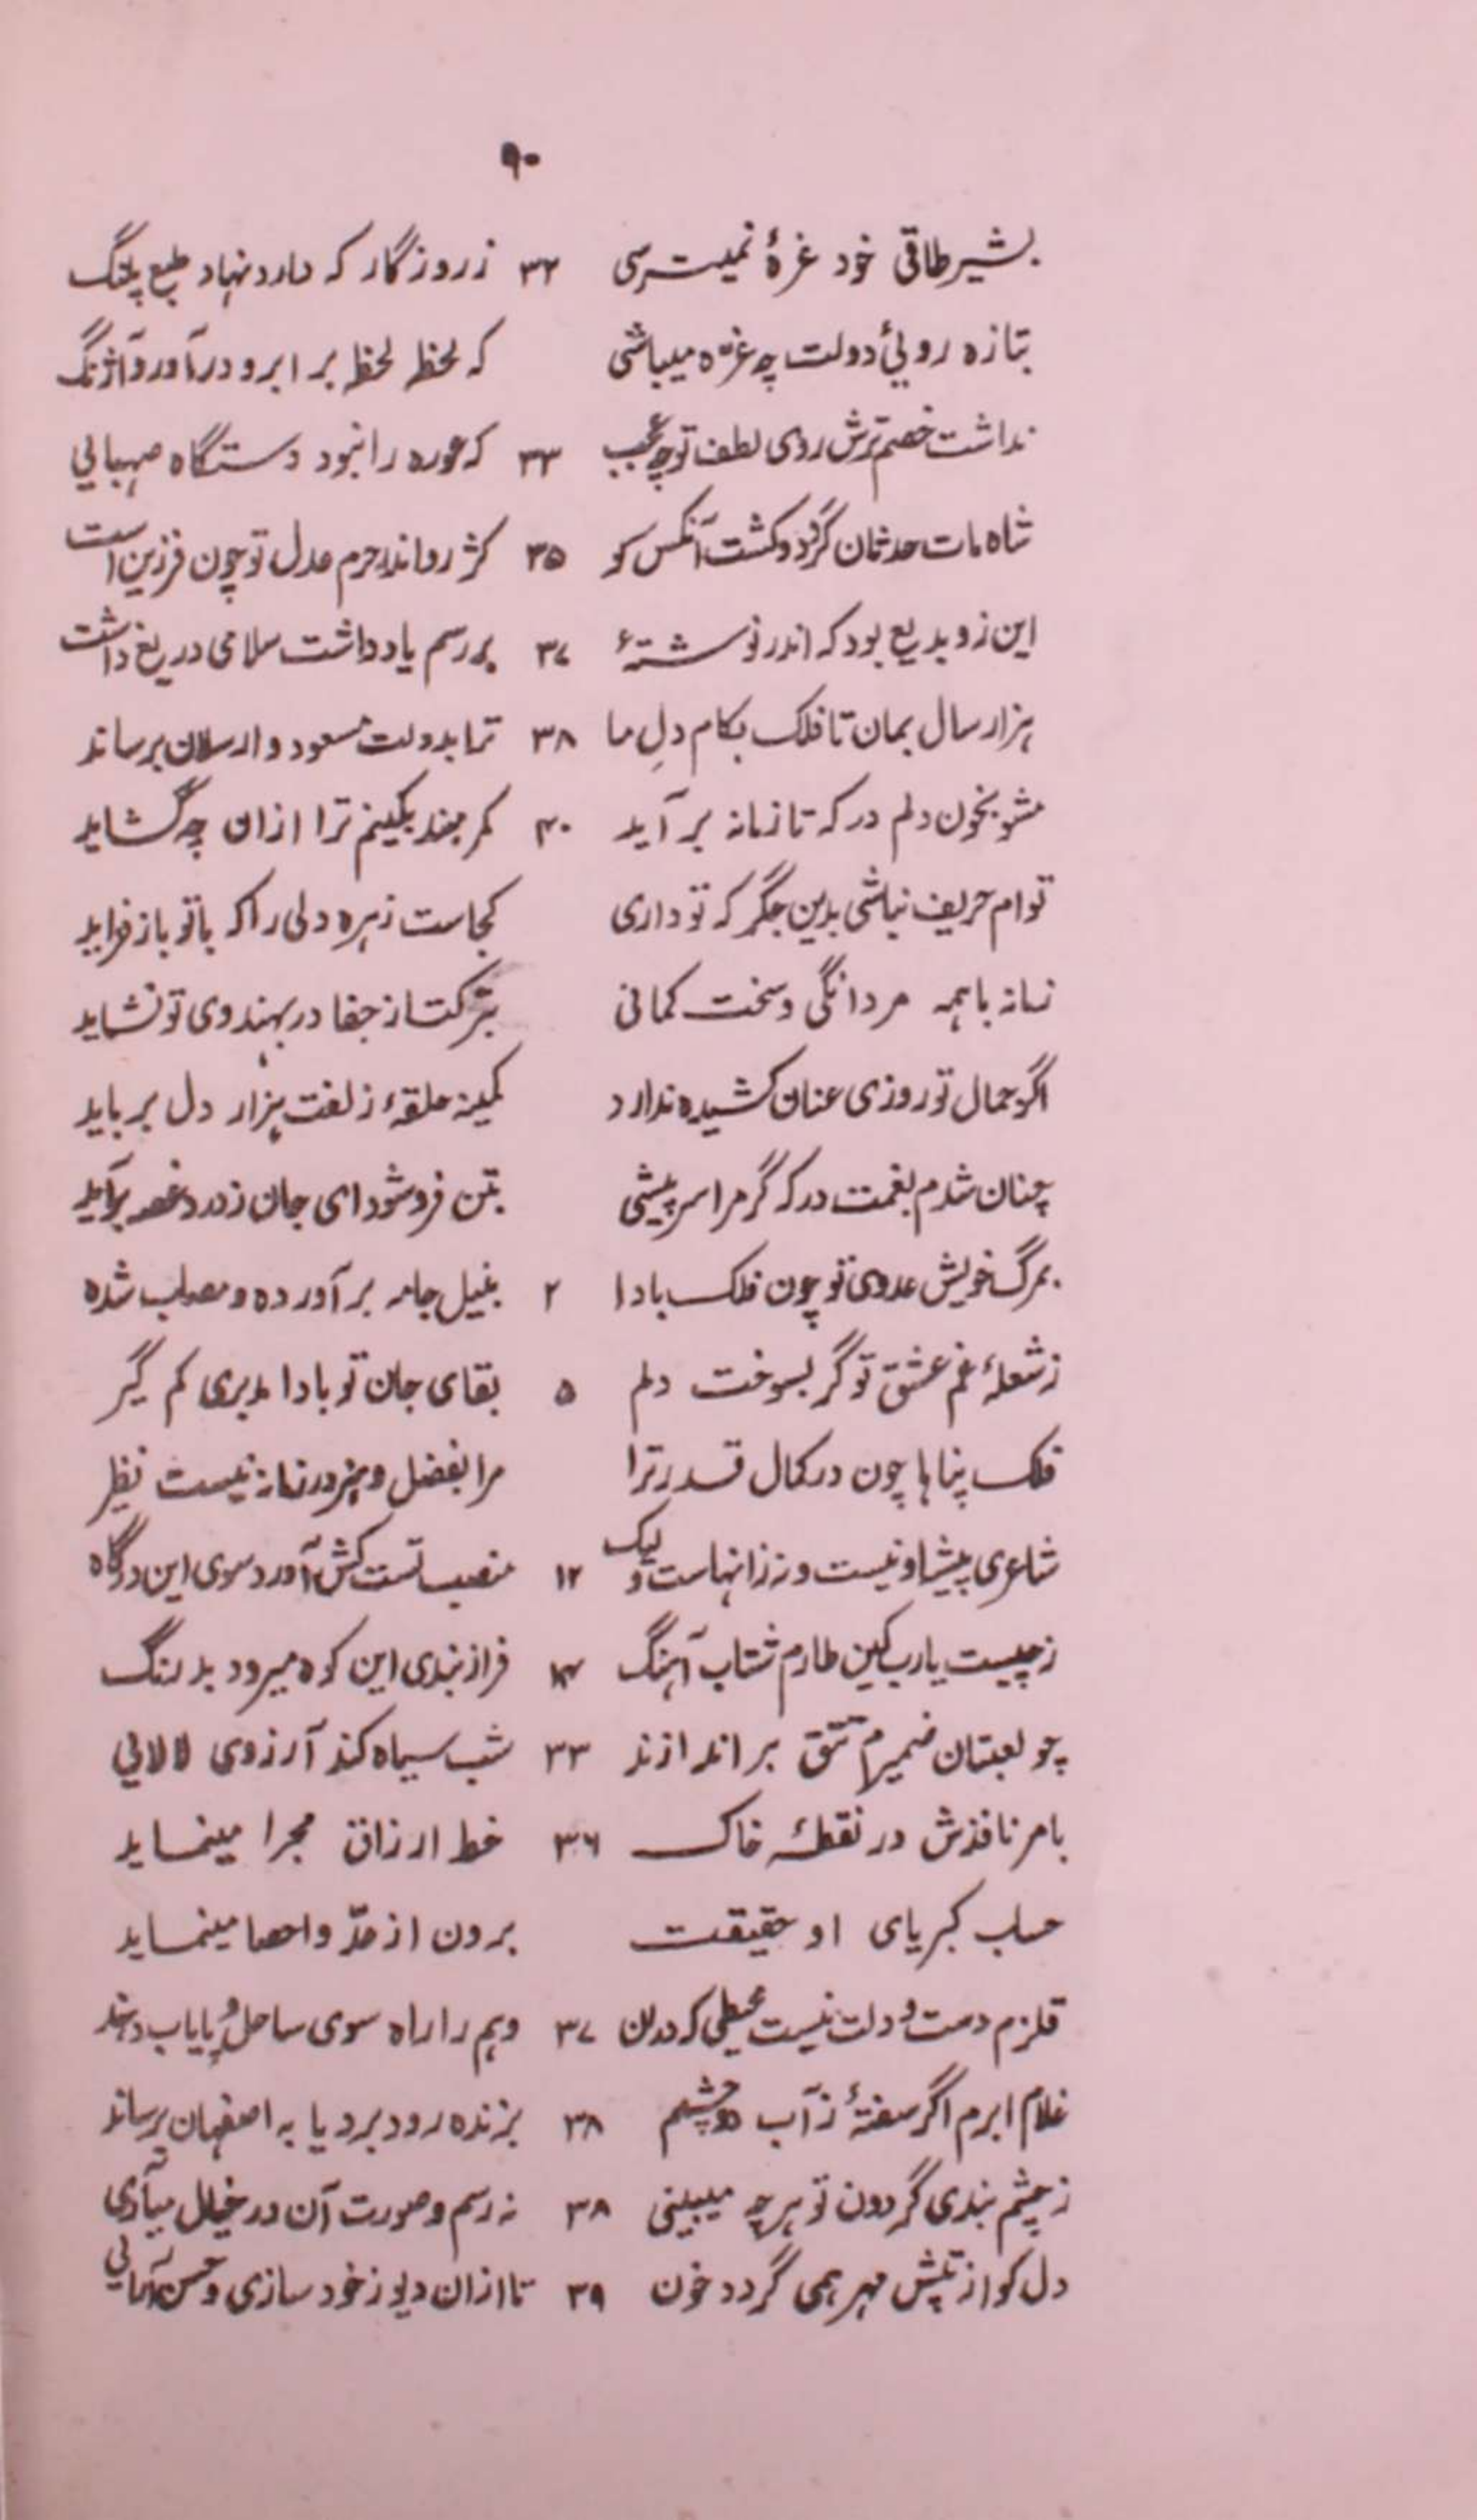 ۹۰
بشیرطاقی خود غرهٔ نمیترسی ۳۲ ز روزگار که دارد نهاد طبع پلنگ
بتازه روئی دولت چه غرّه میباشی که لحظ لحظ بر ابرو در آورد آژنگ
نداشت خصم ترش روی لطف تو چه عجب ۳۳ که غوره را نبود دستگاه صهبایی
شاه مات حدثان گردد و کشت آنکس کو ۳۵ کژ رو اندر حرم عدل تو چون فرزین است
این زو بدیع بود که اندر نوشتهٔ ۳۷ بر رسم یادداشت سلامی دریغ داشت
هزار سال بمان تا فلک بکام دلِ ما ۳۸ ترا بدولت مسعود و ارسلان برساند
مشو بخون دلم در که تا زمانه بر آید ۴۰ کمر مبند بکینم ترا ازان چه گشاید
توام حریف نباشی بدین جگر که تو داری کجاست زهره دلی را که با تو باز فزاید
زمانه با همه مردانگی و سخت کمانی بترکتاز جفا در بهندوی تو نشاید
اگر جمال تو روزی عنان کشیده ندارد کمینه حلقهٔ زلفت هزار دل برباید
چنان شدم بغمت در که گر مرا سر پیشی بتن فروشود ای جان ز درد غصه برآید
بمرگ خویش عدوی تو چون فلک بادا ۲ بنیل جامه بر آورده و مصلب شده
ز شعلهٔ غم عشق تو گر بسوخت دلم ۵ بقای جان تو بادا مدبری کم گیر
فلک پناها چون در کمال قدر ترا مرا بفضل و هنر در زمانه نیست نظیر
شاعری پیشهٔ او نیست و نه زانهاست و لیک ۱۲ منصب تست کش آورد سوی این درگاه
ز چیست یارب کین طارم شتاب آهنگ ۱۴ فراز بندی این کوه میرود بدرنگ
چو لعبتان ضمیرم تتق بر اندازند ۳۳ شب سیاه کند آرزوی لالائی
بامر نافذش در نقطهٔ خاک ۳۶ خط ارزاق مجرا مینماید
حساب کبریای او حقیقت برون از عدّ و احصا مینماید
قلزم دست و دلت نیست محیطی که دران ۳۷ وهم را راه سوی ساحل و پایاب دهند
غلام ابرم اگر سفتهٔ ز آب دو چشم ۳۸ بزنده رود برد یا به اصفهان برساند
ز چشم بندی گردون تو هر چه میبینی ۳۸ نه رسم و صورت آن در خیال میآری
دل کو از تپش مهر همی گردد خون ۳۹ تا ازان دیو ز خود سازی و حسن آمائی